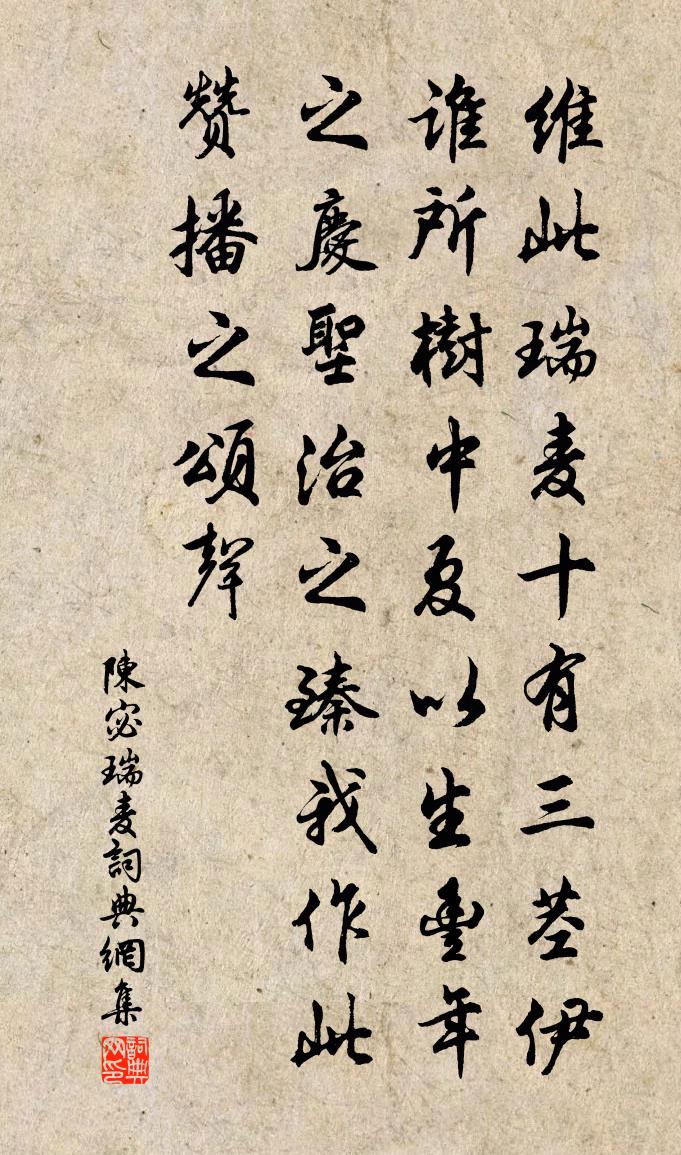 維此瑞麦十有三茎伊
誰所樹中夏以生豐年
之慶聖治之臻我作此
赞播之頌聲
陳宓瑞麦詞典網集
詞典网印